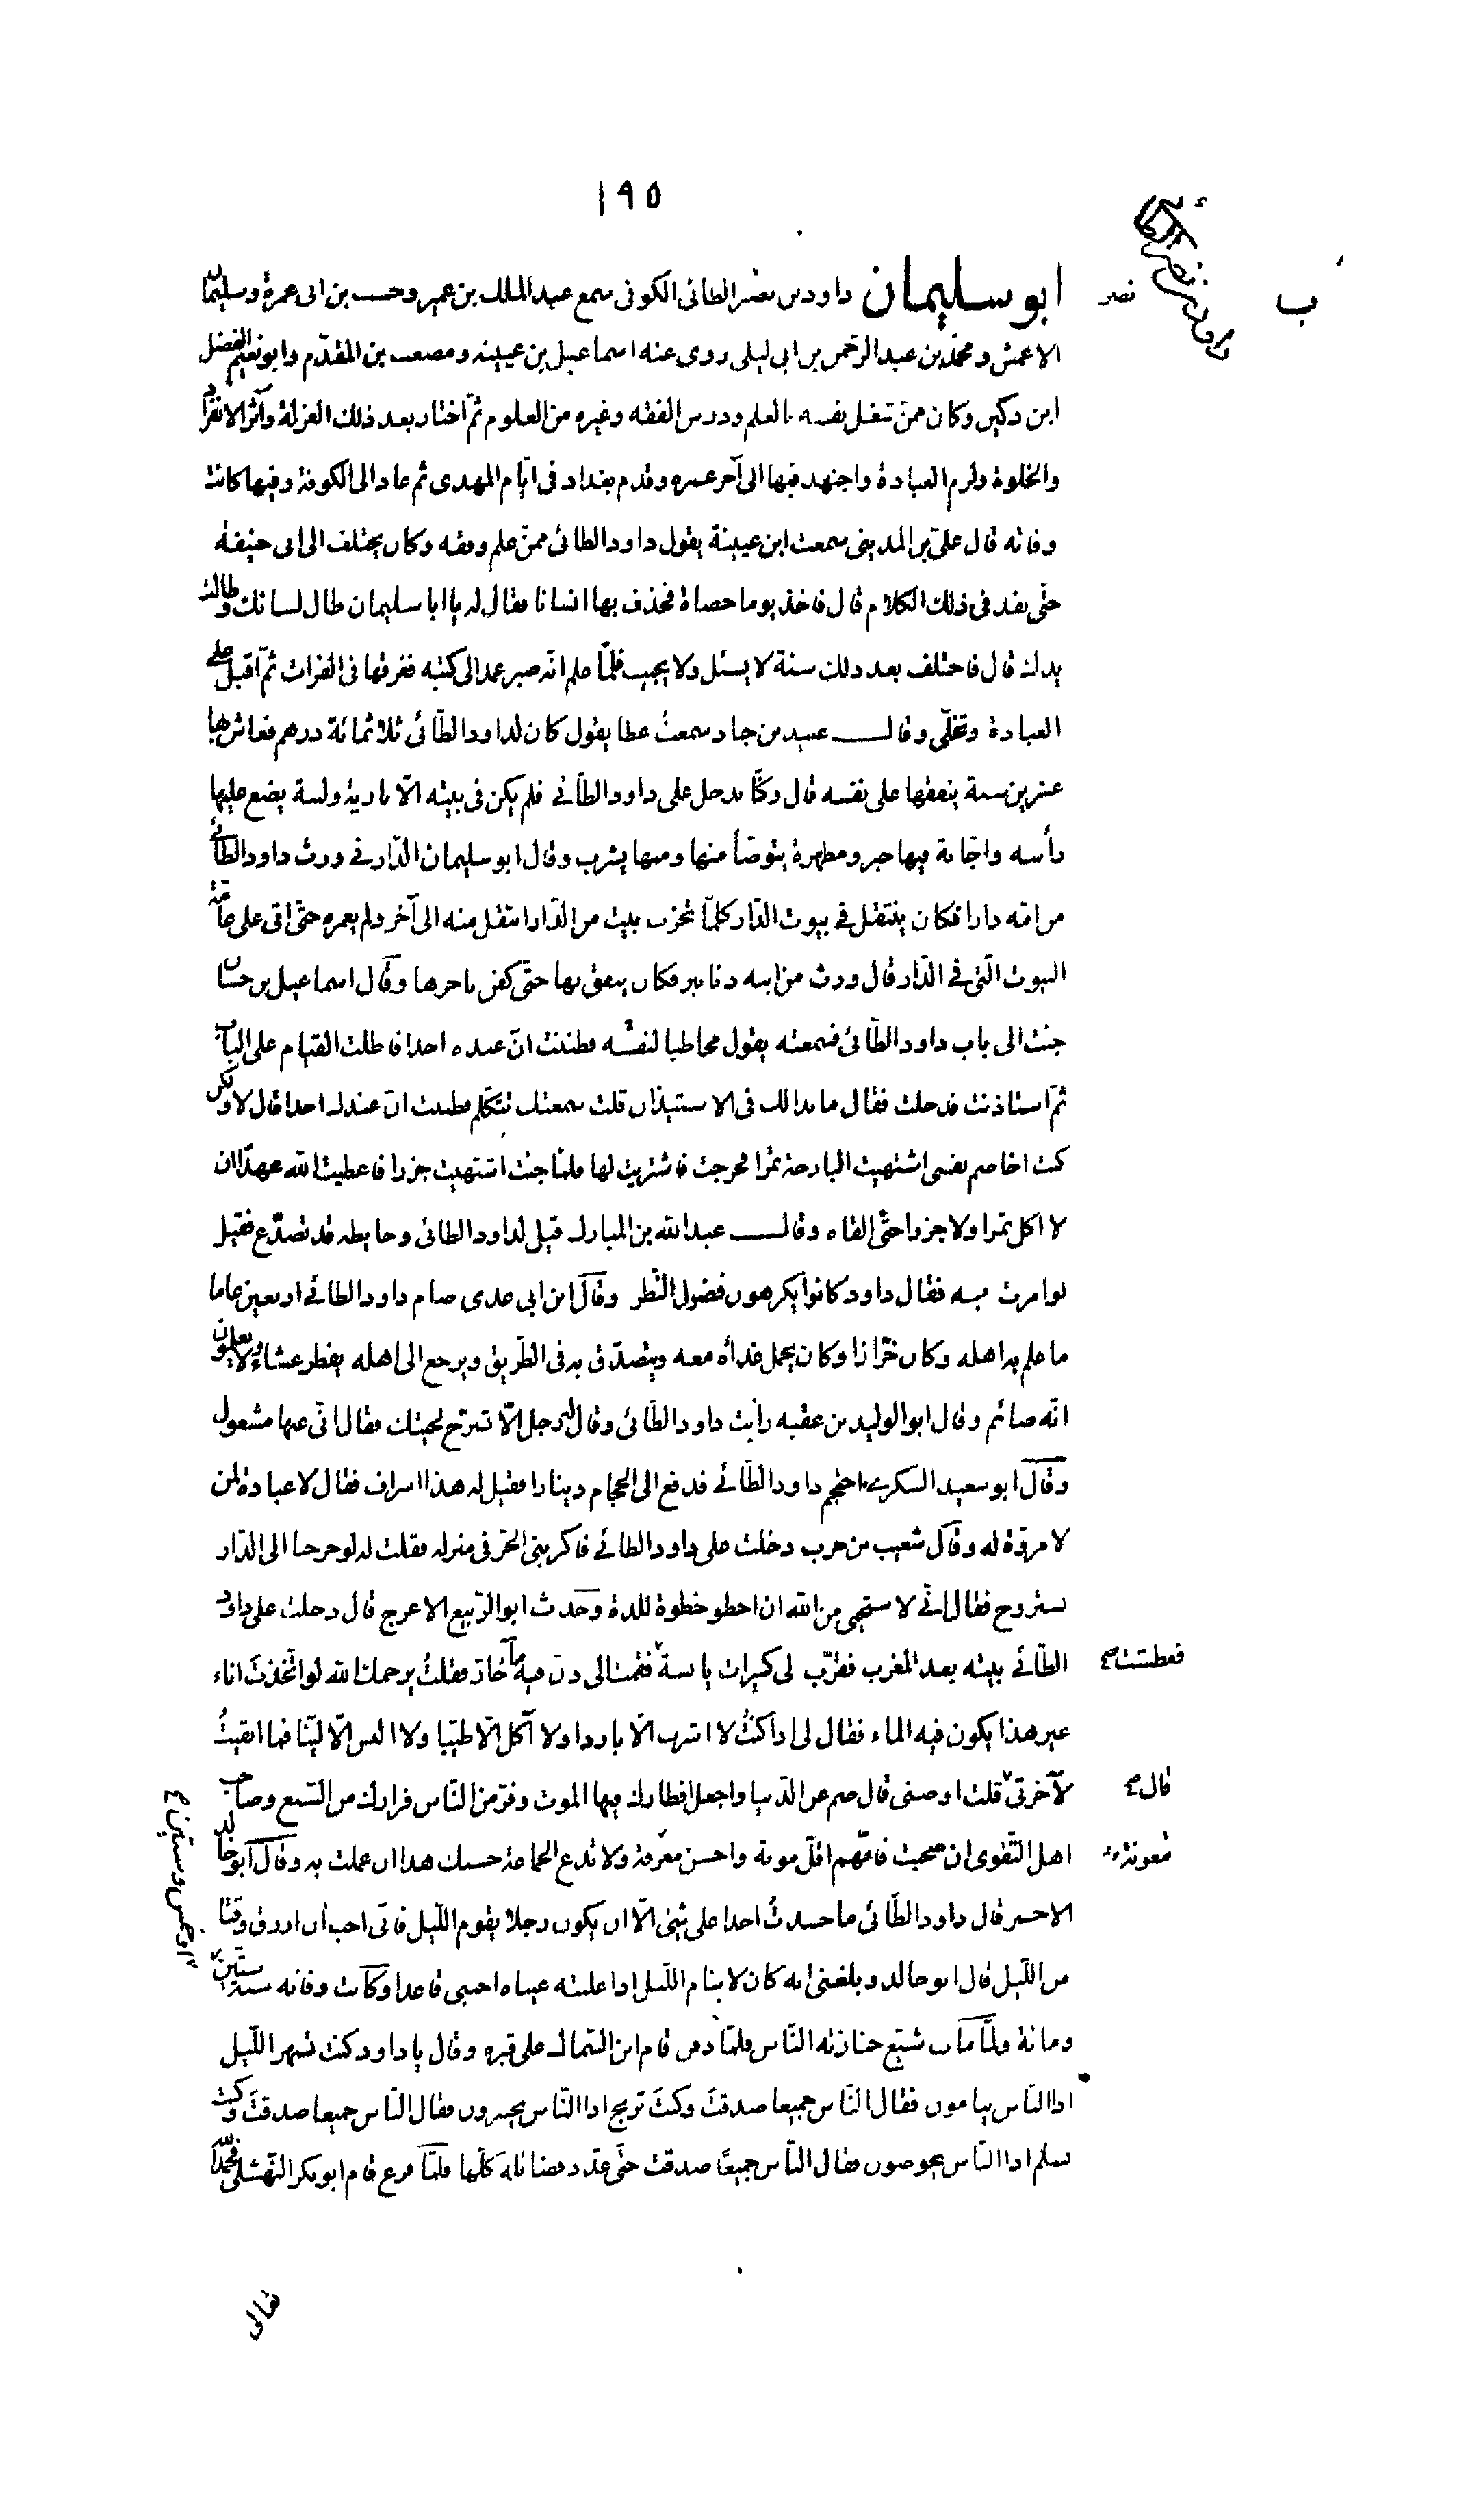 ١٩٥
داود بن نصر الطائي
ب
نصر
ابو سليمان داود بن نصر الطائى الكوفى سمع عبد الملك بن عمير وحبيب بن ابى عمرة وسليمان
الاعمش ومحمّد بن عبد الرحمن بن ابى ليلى روى عنه اسماعيل بن عيينه ومصعب بن المقدّم وابو نعيم الفضل
ابن دكين وكان ممن شغل نفسه بالعلم ودرس الفقه وغيره من العلوم ثمّ اختار بعد ذلك العزلة وآثر الانفراد
والخلوة ولزم العبادة واجتهد فيها الى آخر عمره وقدم بغداد فى ايّام المهدى ثم عاد الى الكوفة وفيها كانت
وفاته قال علىّ بن المدينى سمعت ابن عيينة يقول داود الطائى ممن علم وفقه وكان يختلف الى ابى حنيفة
حتّى نفد فى ذلك الكلام قال فاخذ يوما حصاة فحذف بها انسانا فقال له يا ابا سليمان طال لسانك وطالت
يدك قال فاختلف بعد ذلك سنة لا يسئل ولا يجيب فلمّا علم انّه صبر عمد الى كتبه فغرقها فى الفرات ثمّ اقبل على
العبادة وتخلّى وقال عبيد بن جناد سمعتُ عطا يقول كان لداود الطّائى ثلاثمائة درهم فعاش بها
عشرين سنة ينفقها على نفسه قال وكنّا ندخل على داود الطّائى فلم يكن فى بيته الّا بارية ولبنة يضع عليها
رأسه واجّانة فيها خبز ومطهرة يتوضّأ منها ومنها يشرب وقال ابو سليمان الدّارنى ورث داود الطّائى
من امّه دارا فكان ينتقل فى بيوت الدّار كلّما تخرّب بيت من الدّار انتقل منه الى آخر ولم يعمره حتّى اتى على عامّة
البيوت الّتى فى الدّار قال وورث من ابيه دنانير فكان ينفق بها حتّى كفن باخرها وقال اسماعيل بن حسان
جئت الى باب داود الطّائى فسمعته يقول مخاطبا لنفسه فظننت انّ عنده احدا فاطلت القيام على الباب
ثمّ استاذنت فدخلت فقال ما بدا لك فى الاستيذان قلت سمعتك تتكلّم فظننت انّ عندك احدا قال لا ولكن
كنت اخاصم نفسى اشتهيت البارحة تمرا فخرجت فاشتريت لها فلمّا جئت اشتهيت جزرا فاعطيت الله عهدا ان
لا اكل تمرا ولا جزرا حتّى القاه وقال عبد الله بن المبارك قيل لداود الطائى وحايطه قد تصدّع فقيل
لو امرت به فقال داود كانوا يكرهون فضول النّظر وقال ابن ابى عدى صام داود الطائى اربعين عاما
ما علم به اهله وكان خرّازا وكان يحمل غداه معه ويتصدّق به فى الطّريق ويرجع الى اهله يفطر عشاء ولا يعلمون
انّه صائم وقال ابو الوليد بن عقبه رأيت داود الطّائى وقال له رجل الّا تسرّح لحيتك فقال انّى عنها مشغول
وقال ابو سعيد السكرى احتجم داود الطّائى فدفع الى الحجام دينارا فقيل له هذا اسراف فقال لا عبادة لمن
لا مروّة له وقال شعيب بن حرب دخلت على داود الطائى فاكربنى الحرّ فى منزله فقلت له لو خرجنا الى الدّار
نستروح فقال انّى لا ستحيى من الله ان اخطو خطوة للذة وحدث ابو الرّبيع الاعرج قال دخلت على داود
الطّائى بيته بعد المغرب فقرّب لى كسيرات يابسة فقمت الى دن فيه ماء حارّ فقلتُ يرحمك الله لو اتّخذتَ اناء
فعطشت صح
غير هذا يكون فيه الماء فقال لى اذا كنتُ لا اشرب الّا باردا ولا آكل الّا طيّبا ولا البس الّا ليّنا فما ابقيتُ
لآخرتى قلت اوصنى قال صم عن الدّنيا واجعل افطارك فيها الموت وفرّ من النّاس فرارك من السّبع وصاحب
قال صح
اهل التّقوى ان صحبت فانّهم اقلّ مونة واحسن معرفة ولا تدع الجماعة حسبك هذا ان عملت به وقال ابو خالد
معونة
الاحمر قال داود الطّائى ما حسدتُ احدا على شئ الّا ان يكون رجلا يقوم اللّيل فانّى احب ان ارزق وقتا
من اللّيل قال ابو خالد وبلغنى انه كان لا ينام اللّيل اذا غلبته عيناه احتبى قاعدا وكانت وفاته سنة ستّين
او خمس وستين
ومائة ولمّا مات شيّع جنازته النّاس فلمّا دفن قام ابن السّماك على قبره وقال يا داود كنت تسهر اللّيل
اذا النّاس ينامون فقال النّاس جميعا صدقتَ وكنتَ تربح اذا النّاس يخسرون فقال النّاس جميعا صدقتَ وكنت
تسلم اذا النّاس يخوضون فقال النّاس جميعًا صدقت حتّى عدّد فضائله كلّها فلمّا فرغ قام ابو بكر النّهشلى فحمد الله
تعالى